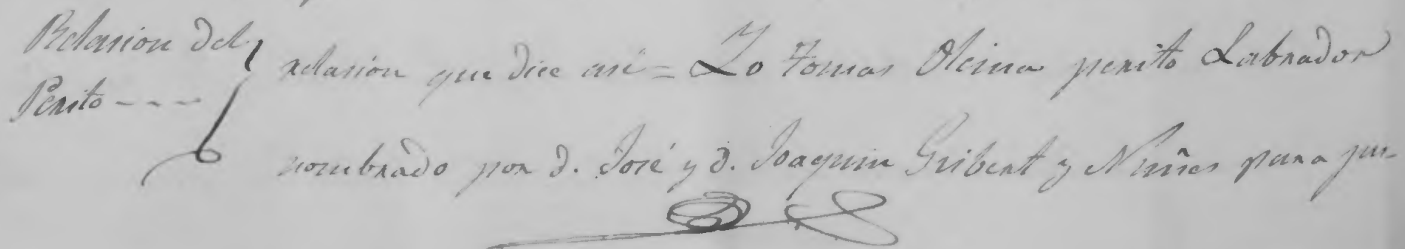 Relasion del
Perito ----
relasion que dice asi = Yo Tomas Olcina perito Labrador
nombrado por d. José y d. Joaquin Gribert y Nuñes para jus-